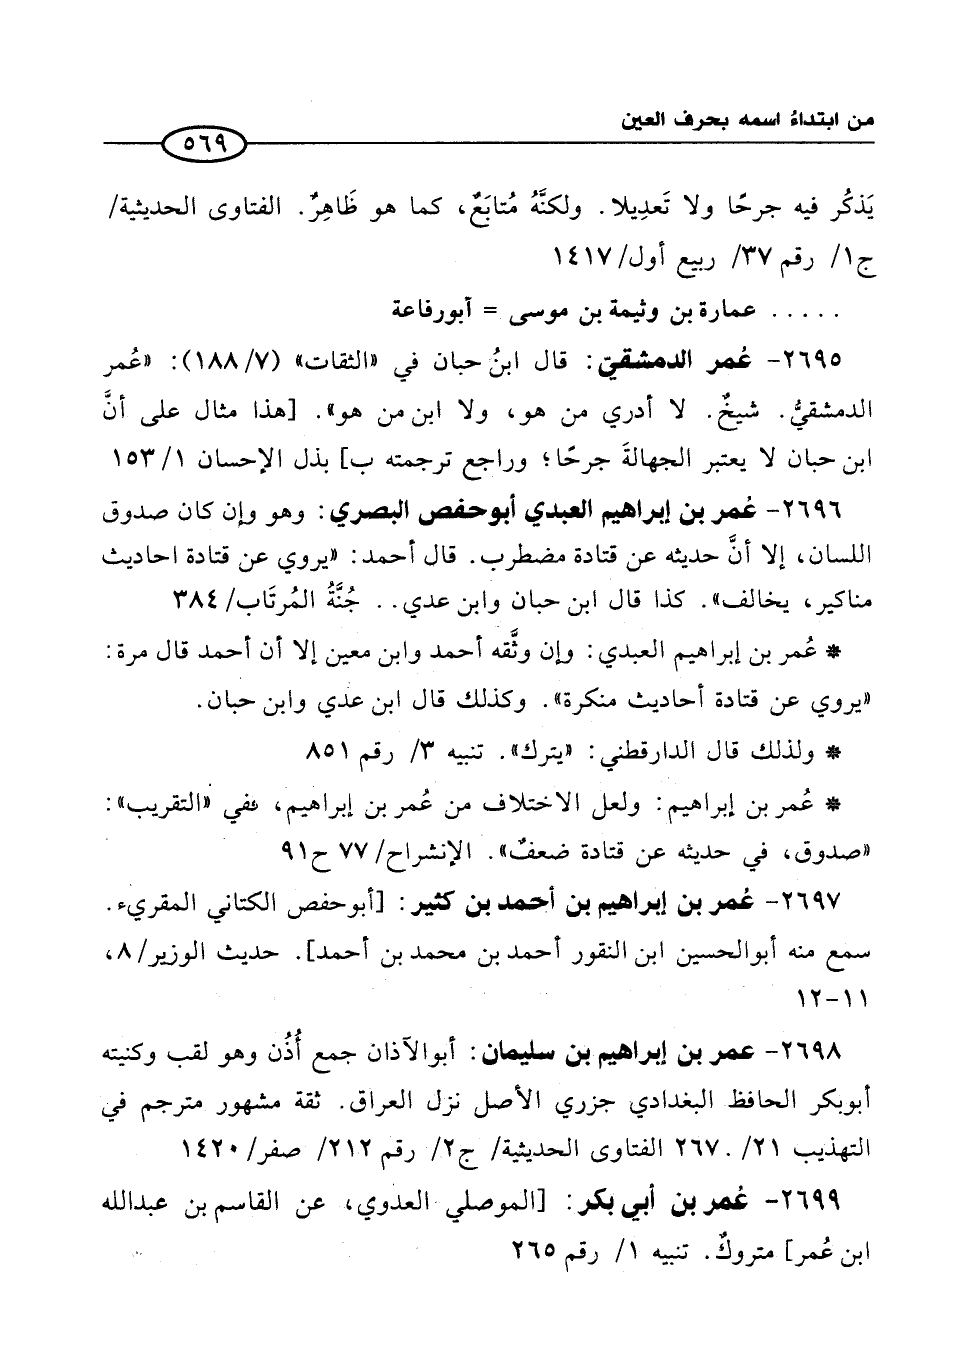 من ابتداءُ اسمه بحرف العين
٥٦٩
يَذكُر فيه جرحًا ولا تَعدِيلا. ولكنَّهُ مُتابَعٌ، كما هو ظَاهِرٌ. الفتاوى الحديثية/
ج١/ رقم ٣٧/ ربيع أول/ ١٤١٧
..... عمارة بن وثيمة بن موسى = أبورفاعة
٢٦٩٥- عُمر الدمشقيّ: قال ابنُ حبان في «الثقات» (١٨٨/٧): «عُمر
الدمشقيُّ. شيخٌ. لا أدري من هو، ولا ابن من هو». [هذا مثال على أنَّ
ابن حبان لا يعتبر الجهالةَ جرحًا؛ وراجع ترجمته ب] بذل الإحسان ١/ ١٥٣
٢٦٩٦- عُمر بن إبراهيم العبدي أبوحفص البصري: وهو وإن كان صدوق
اللسان، إلا أنَّ حديثه عن قتادة مضطرب. قال أحمد: «يروي عن قتادة احاديث
مناكير، يخالف». كذا قال ابن حبان وابن عدي.. جُنَّةُ المُرتَاب/ ٣٨٤
* عُمر بن إبراهيم العبدي: وإن وثَّقه أحمد وابن معين إلا أن أحمد قال مرة:
«يروي عن قتادة أحاديث منكرة». وكذلك قال ابن عدي وابن حبان.
* ولذلك قال الدارقطني: «يترك». تنبيه ٣/ رقم ٨٥١
* عُمر بن إبراهيم: ولعل الاختلاف من عُمر بن إبراهيم، ففي «التقريب»:
«صدوق، في حديثه عن قتادة ضعفٌ». الإنشراح/ ٧٧ ح٩١
٢٦٩٧- عُمر بن إبراهيم بن أحمد بن كثير: [أبوحفص الكتاني المقريء.
سمع منه أبوالحسين ابن النقور أحمد بن محمد بن أحمد]. حديث الوزير/ ٨،
١١-١٢
٢٦٩٨- عمر بن إبراهيم بن سليمان: أبوالآذان جمع أُذُن وهو لقب وكنيته
أبوبكر الحافظ البغدادي جزري الأصل نزل العراق. ثقة مشهور مترجم في
التهذيب ٢١/ . ٢٦٧ الفتاوى الحديثية/ ج٢/ رقم ٢١٢/ صفر/ ١٤٢٠
٢٦٩٩- عُمر بن أبي بكر: [الموصلي العدوي، عن القاسم بن عبدالله
ابن عُمر] متروكٌ. تنبيه ١/ رقم ٢٦٥